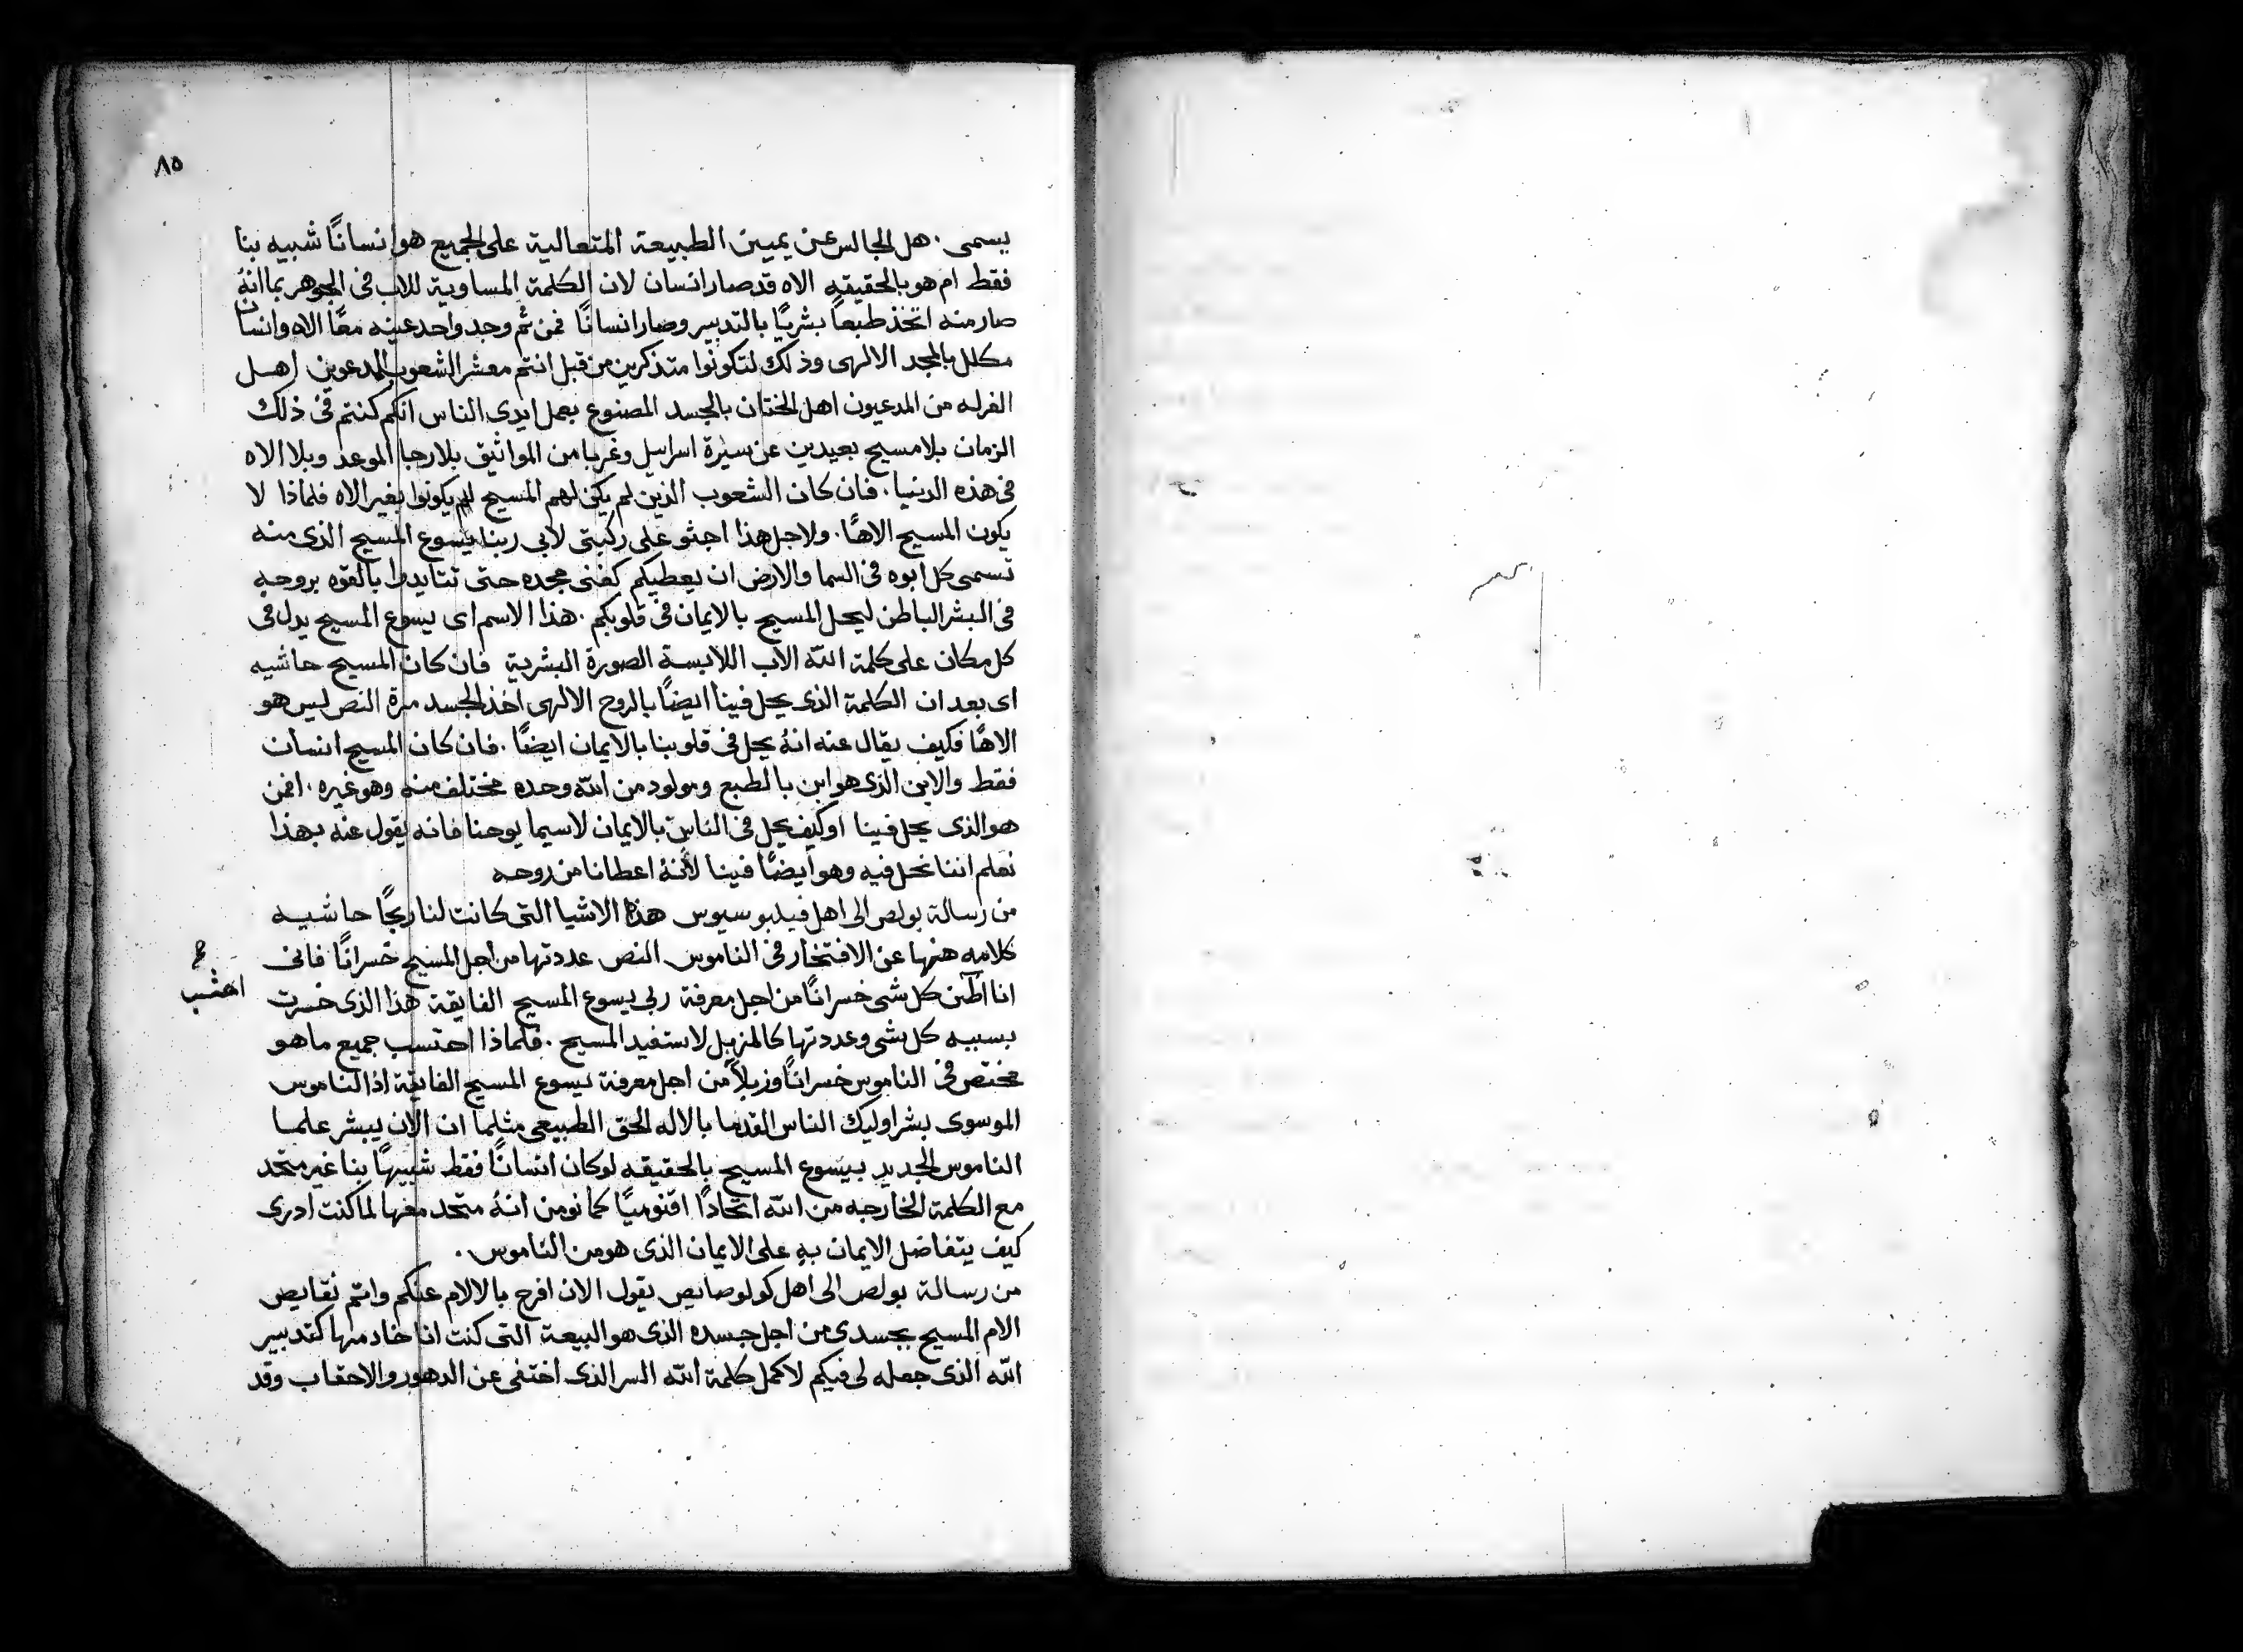 ٨٥
يسمى . هل الجالس عن يمين الطبيعة المتعالية على الجميع هو انسانًا شبيه بنا
فقط ام هو بالحقيقه الاه قد صار انسان لان الكلمة المساوية للاب فى الجوهر بما انهُ
صار منه اتخذ طبعاً بشريًا بالتدبير وصار انسانًا فمن ثم وجد واحد عينه معًا الاه وانسان
مكلل بالمجد الالهى وذلك لتكونوا متذكرين من قبل انتم معشر الشعوب المدعوين اهل
الغرله من المدعيون اهل الختان بالجسد المصنوع بعمل ايدى الناس انكم كنتم فى ذلك
الزمان بلا مسيح بعيدين عن سيرة اسراييل وغربا من المواثيق بلا رجا الموعد وبلا الاه
فى هذه الدنيا . فان كان الشعوب الذين لم يكن لهم المسيح لم يكونوا بغير الاه فلماذا لا
يكون المسيح الاهًا . ولاجل هذا اجثو على ركبتى لابى ربنا يسوع المسيح الذى منه
تسمى كل ابوه فى السما والارض ان يعطيكم كغنى مجده حتى تتايدوا بالقوه بروحه
فى البشر الباطن ليحل المسيح بالايمان فى قلوبكم . هذا الاسم اى يسوع المسيح يدل فى
كل مكان على كلمة الله الاب اللابسة الصورة البشرية فان كان المسيح حاشيه
اى بعد ان الكلمة الذى يحل فينا ايضًا بالروح الالهى اخذ الجسد مرة النص ليس هو
الاهًا فكيف يقال عنه انهُ يحل فى قلوبنا بالايمان ايضًا . فان كان المسيح انسان
فقط والابن الذى هو ابن بالطبع ومولود من الله وحده مختلف منه وهو غيره . افمن
هو الذى يحل فينا او كيف يحل فى الناس بالايمان لاسيما يوحنا فانه يقول عنه بهذا
نعلم اننا نحل فيه وهو ايضًا فينا لأنهُ اعطانا من روحه
من رسالة بولص الى اهل فيلبوسيوس هذه الاشيا التى كانت لنا ربحًا حاشيه
كلامه هنها عن الافتخار فى الناموس النص عددتها من اجل المسيح خسرانًا فانى
انا اظن كل شى خسرانًا من اجل معرفة ربى يسوع المسيح الفايقة هذا الذى خسرت
احتسب
بسببه كل شى وعددتها كالمزبل لاستفيد المسيح . فلماذا احتسب جميع ما هو
مختص فى الناموس خسرانًا وزبلاً من اجل معرفة يسوع المسيح الفايقة اذ الناموس
الموسوى بشر اوليك الناس القدما بالاله الحق الطبيعى مثلما ان الان يبشر علما
الناموس الجديد بيسوع المسيح بالحقيقه لو كان انسانًا فقط شبيهًا بنا غير متحد
مع الكلمة الخارجه من الله اتحادًا اقنوميًا كما نومن انهُ متحد معها لما كنت ادرى
كيف يتفاضل الايمان به على الايمان الذى هو من الناموس .
من رسالة بولص الى اهل كولوصايص يقول الان افرح بالالام عنكم واتم نقايص
الام المسيح بجسدى من اجل جسده الذى هو البيعة التى كنت انا خادمها كتدبير
الله الذى جعله لى فيكم لاكمل كلمة الله السر الذى اختفى عن الدهور والاحقاب وقد